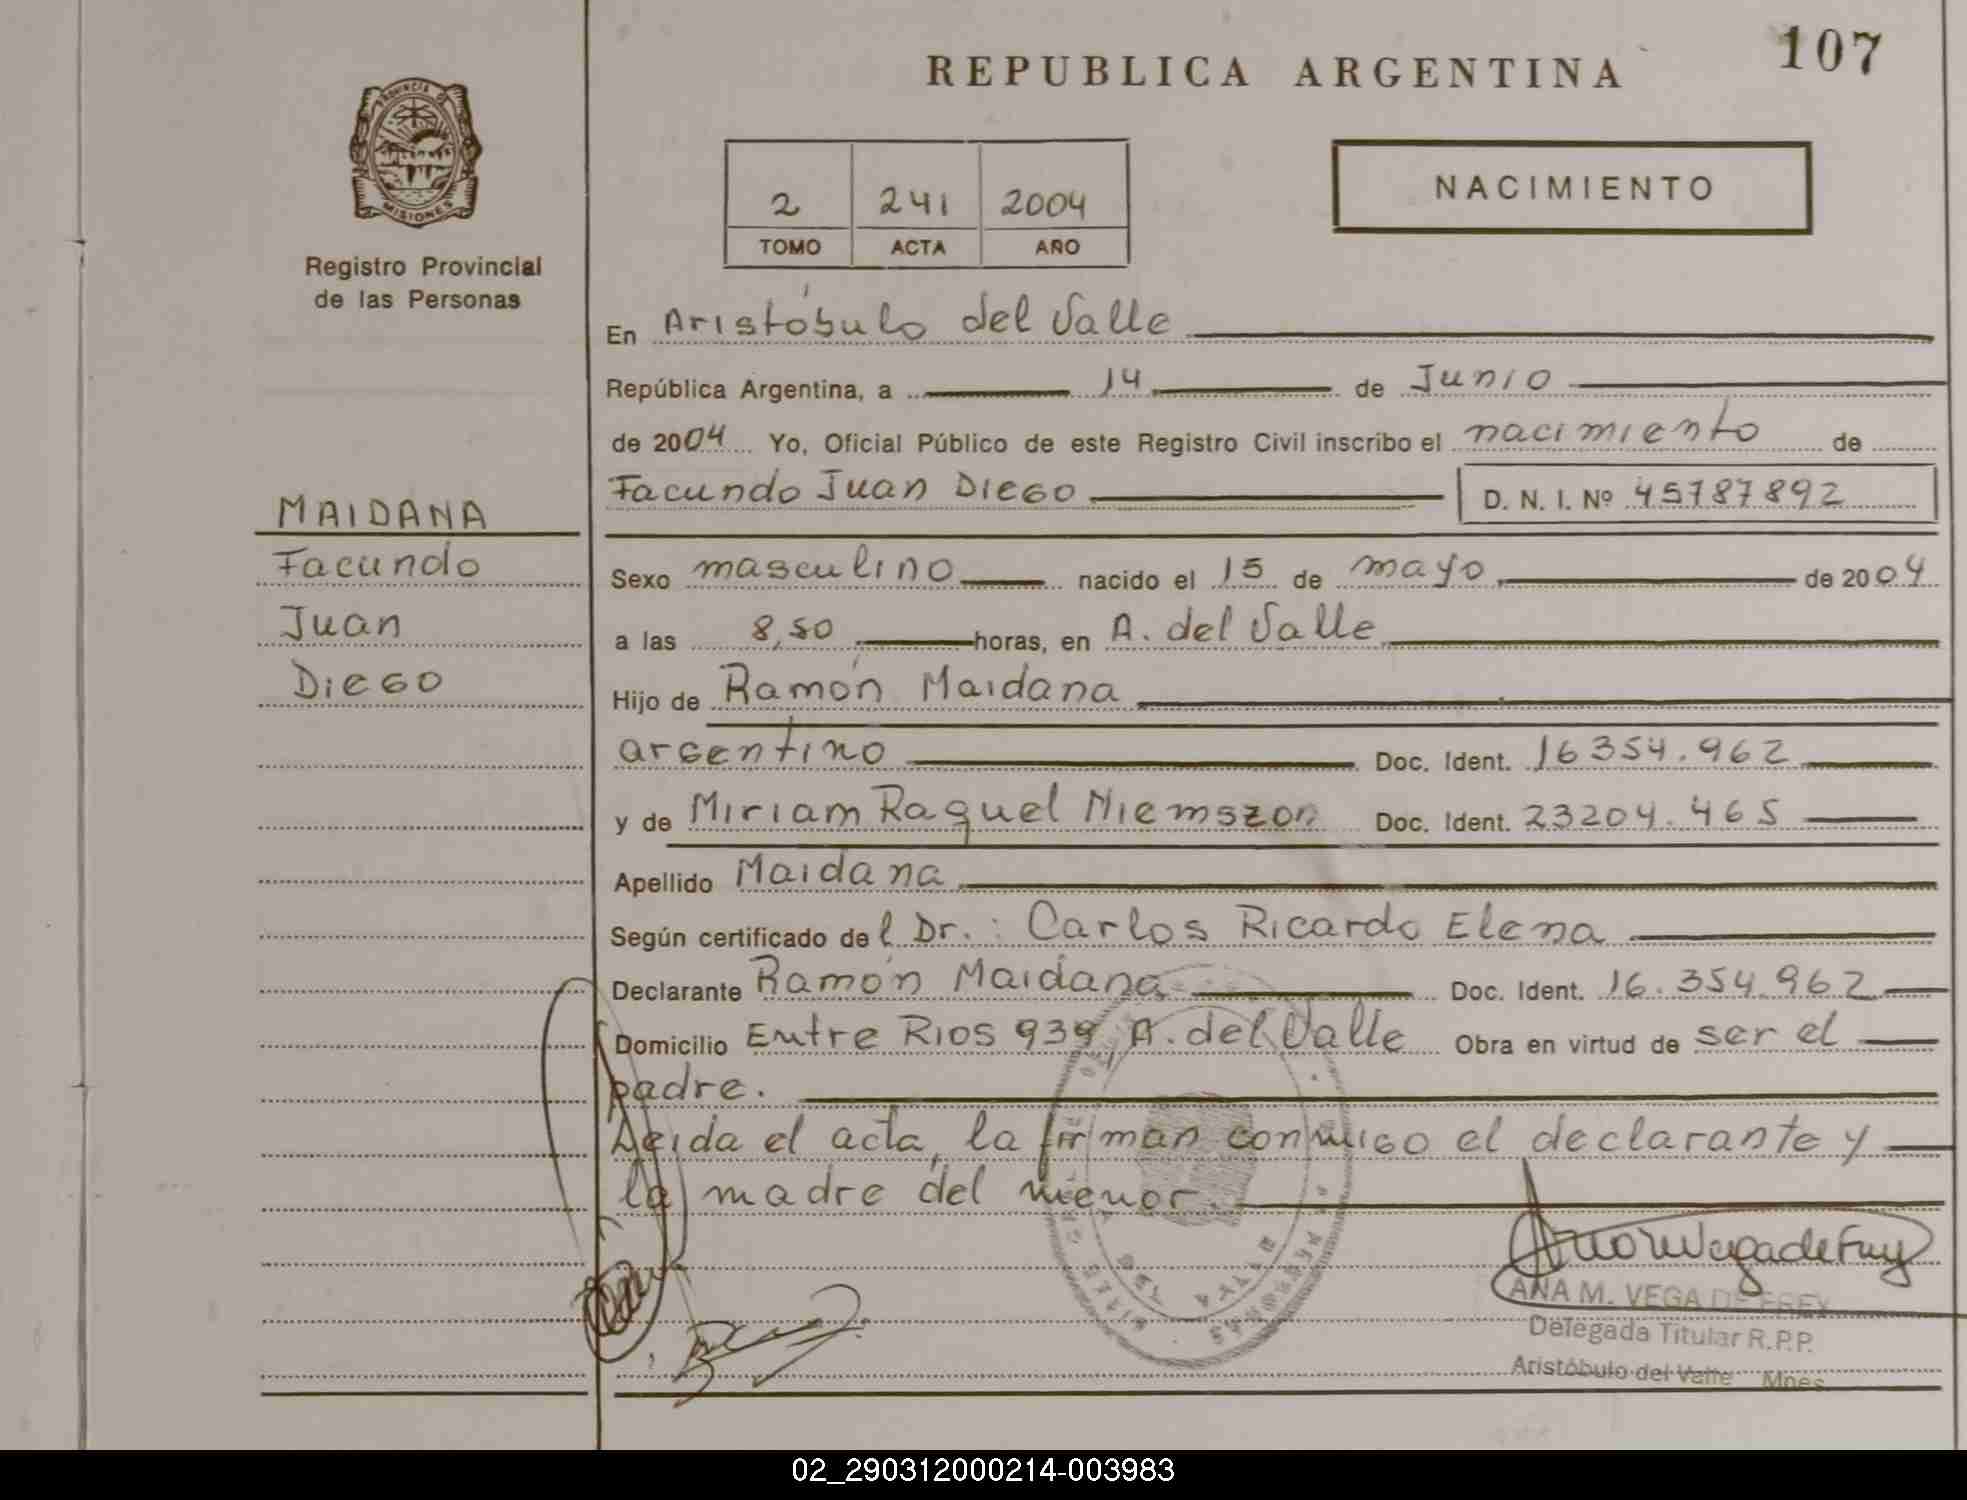 107
REPUBLICA ARGENTINA
PROVINCIA DE
MISIONES
Registro Provincial
de las Personas
2 241 2004
TOMO ACTA AÑO
NACIMIENTO
En Aristóbulo del Valle
República Argentina, a 14 de Junio
de 2004 Yo, Oficial Público de este Registro Civil inscribo el nacimiento de
Facundo Juan Diego D. N. I. Nº 45787892
MAIDANA
Facundo
Juan
Diego
Sexo masculino nacido el 15 de mayo de 2004
a las 8,50 horas, en A. del Valle
Hijo de Ramón Maidana
argentino Doc. Ident. 16354.962
y de Miriam Raquel Niemszon Doc. Ident. 23204.465
Apellido Maidana
Según certificado del Dr.: Carlos Ricardo Elena
Declarante Ramón Maidana Doc. Ident. 16.354.962
Domicilio Entre Rios 939, A. del Valle Obra en virtud de ser el
padre.
Leida el acta, la firman conmigo el declarante y
la madre del menor.
ANA M. VEGA DE FREY
Delegada Titular R.P.P.
Aristóbulo del Valle Mnes
02_290312000214-003983